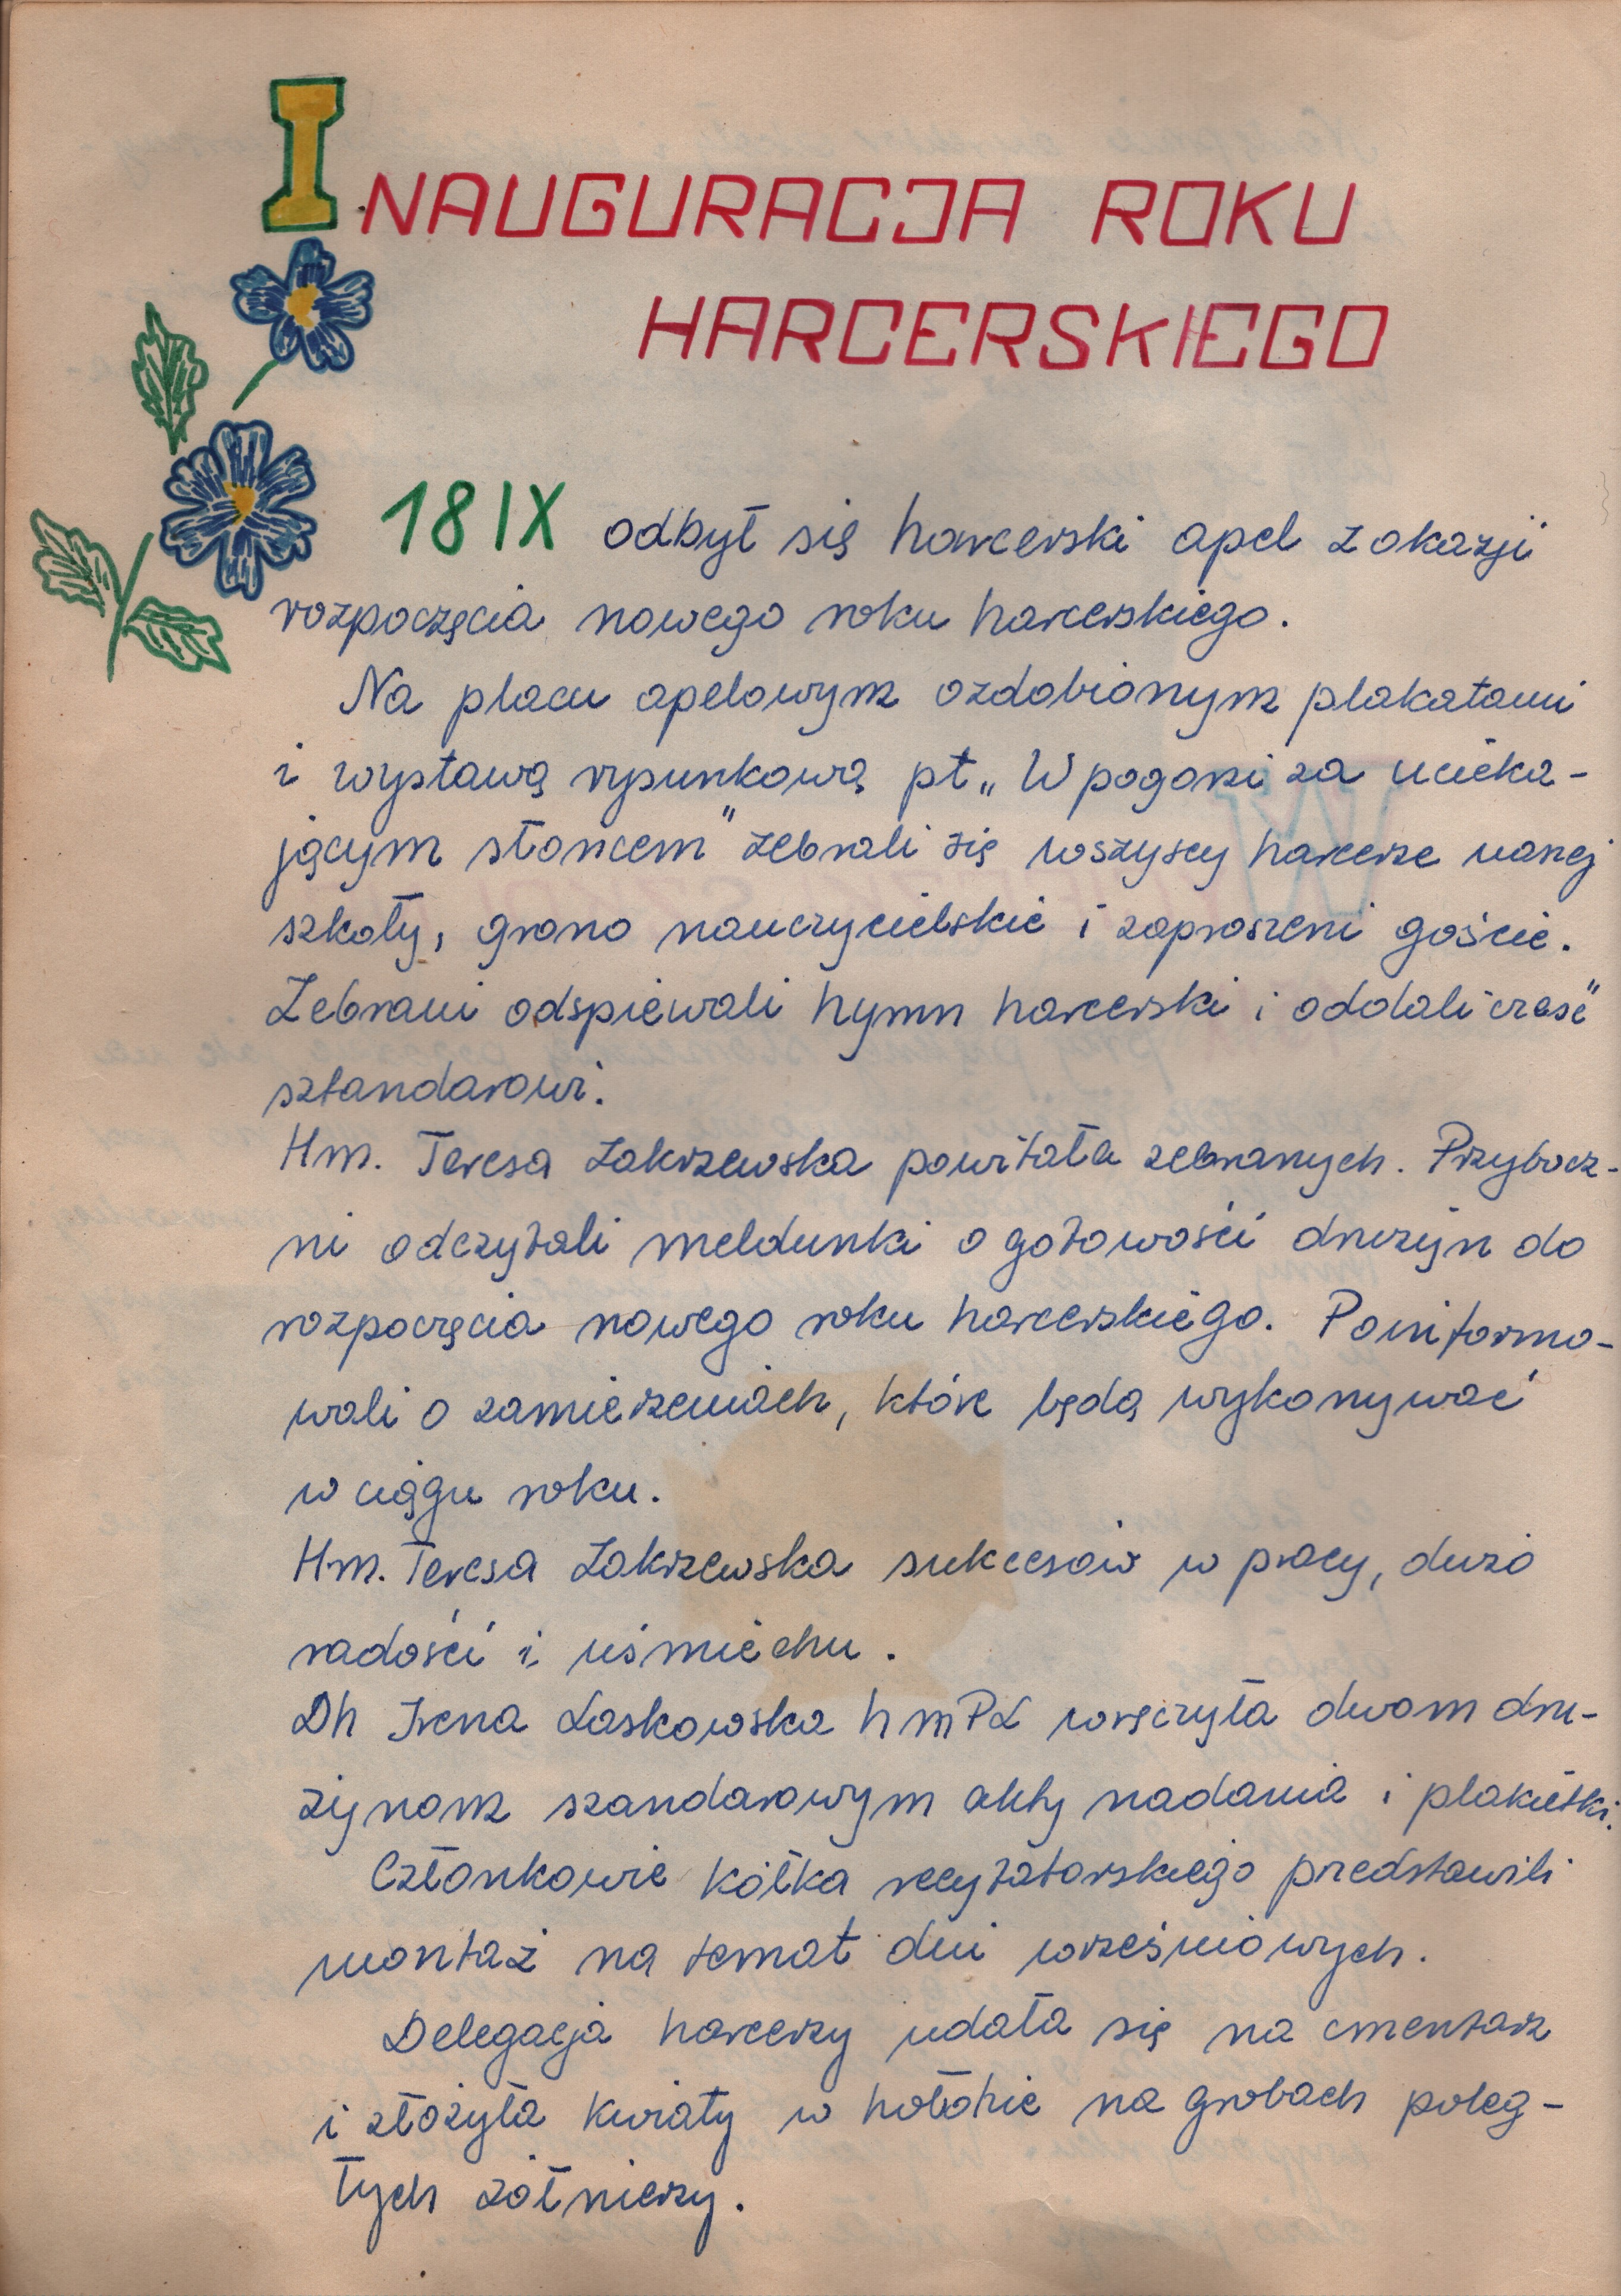 INAUGURACJA ROKU
HARCERSKIEGO
18 IX odbył się harcerski apel z okazji
rozpoczęcia nowego roku harcerskiego.
Na placu apelowym ozdobionym plakatami
i wystawą rysunkową pt „W pogoni za ucieka-
jącym słońcem" zebrali się wszyscy harcerze naszej
szkoły, grono nauczycielskie i zaproszeni goście.
Zebrani odspiewali hymn harcerski i oddali cześć
sztandarowi.
Hm. Teresa Zakrzewska powitała zebranych. Przybocz-
ni odczytali meldunki o gotowości drużyn do
rozpoczęcia nowego roku harcerskiego. Poinformo-
wali o zamierzeniach, które będą wykonywać
w ciągu roku.
Hm. Teresa Zakrzewska sukcesów w pracy, dużo
radości i uśmiechu.
Dh Irena Laskowska hm PL wręczyła dwom dru-
żynom szandarowym akty nadania i plakietki.
Członkowie kółka recytatorskiego przedstawili
montaż na temat dni wrześniowych.
Delegacja harcerzy udała się na cmentarz
i złożyła kwiaty w hołdzie na grobach poleg-
łych żołnierzy.